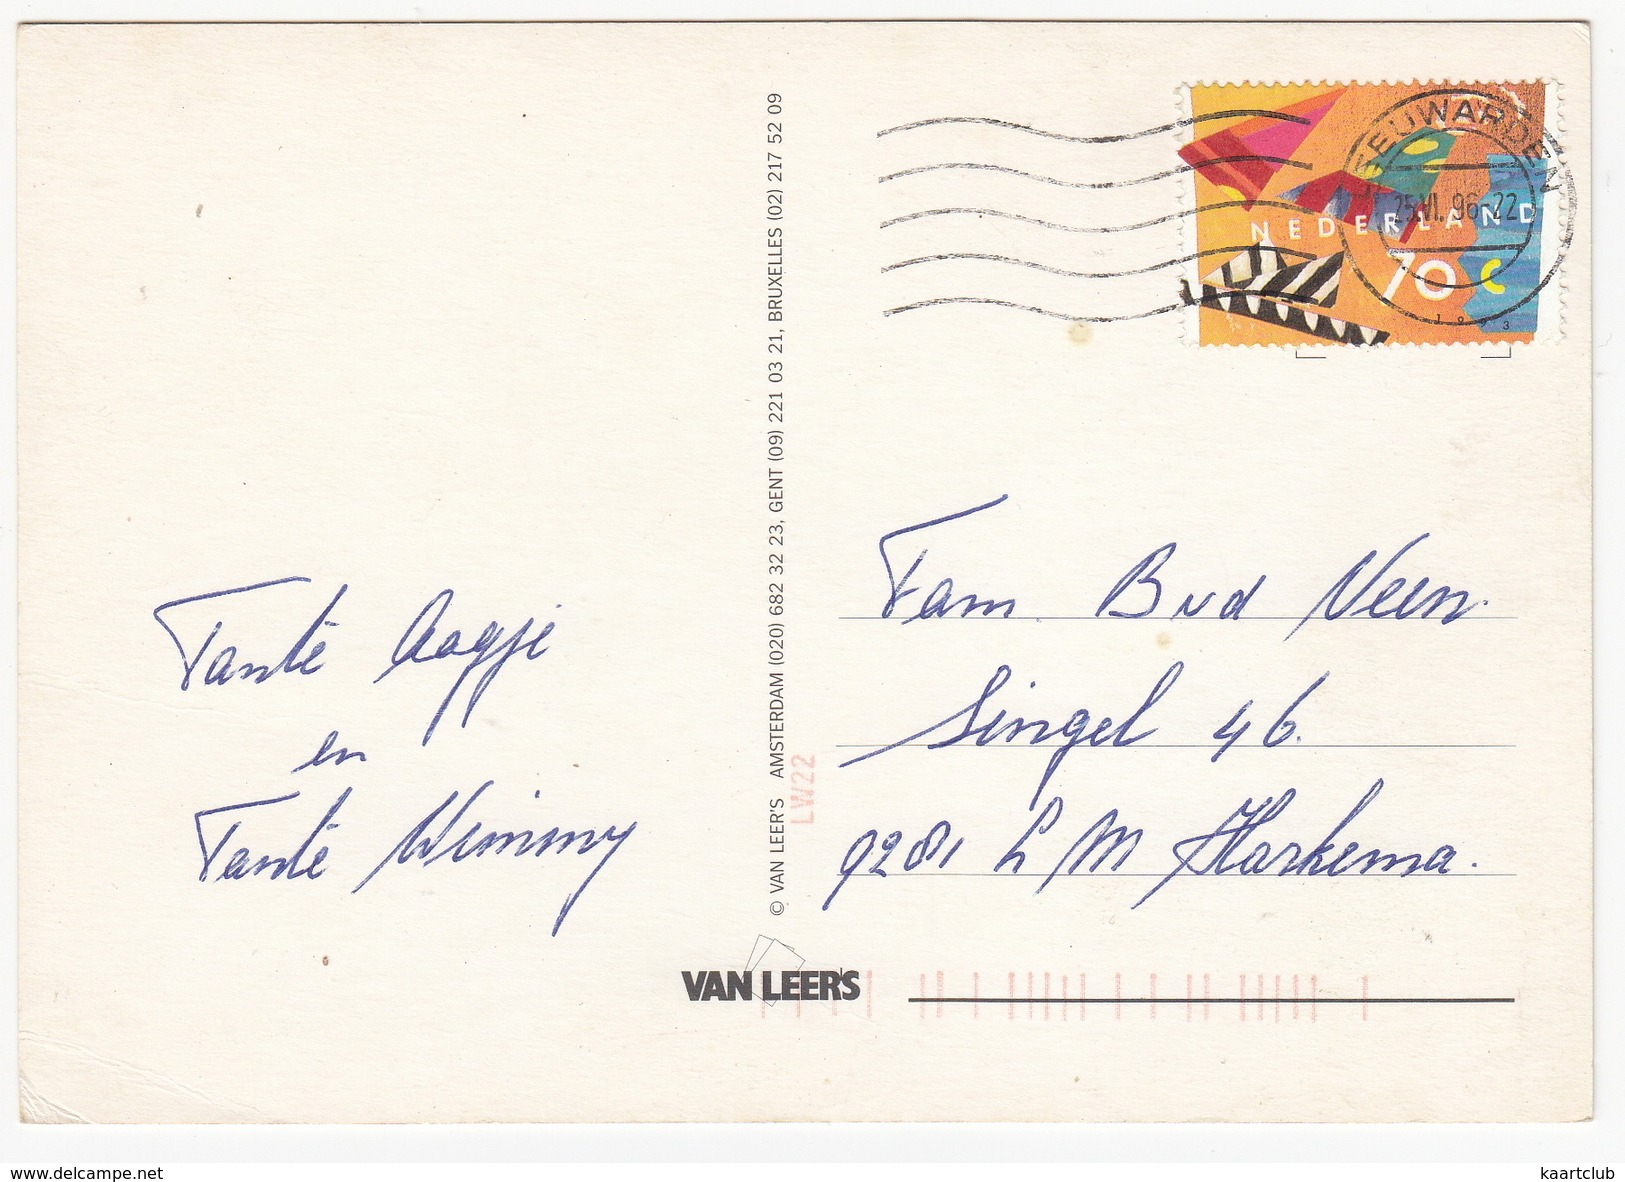 LEEUWARDEN
25.VI.96-22
NEDERLAND
70 c
1993
Tante Aagje
en
Tante Wimmy
© VAN LEER'S AMSTERDAM (020) 682 32 23, GENT (09) 221 03 21, BRUXELLES (02) 217 52 09
LW22
Fam. Bvd Veen.
Singel 46.
9281 LM Harkema.
VAN LEER'S
www.delcampe.net
kaartclub